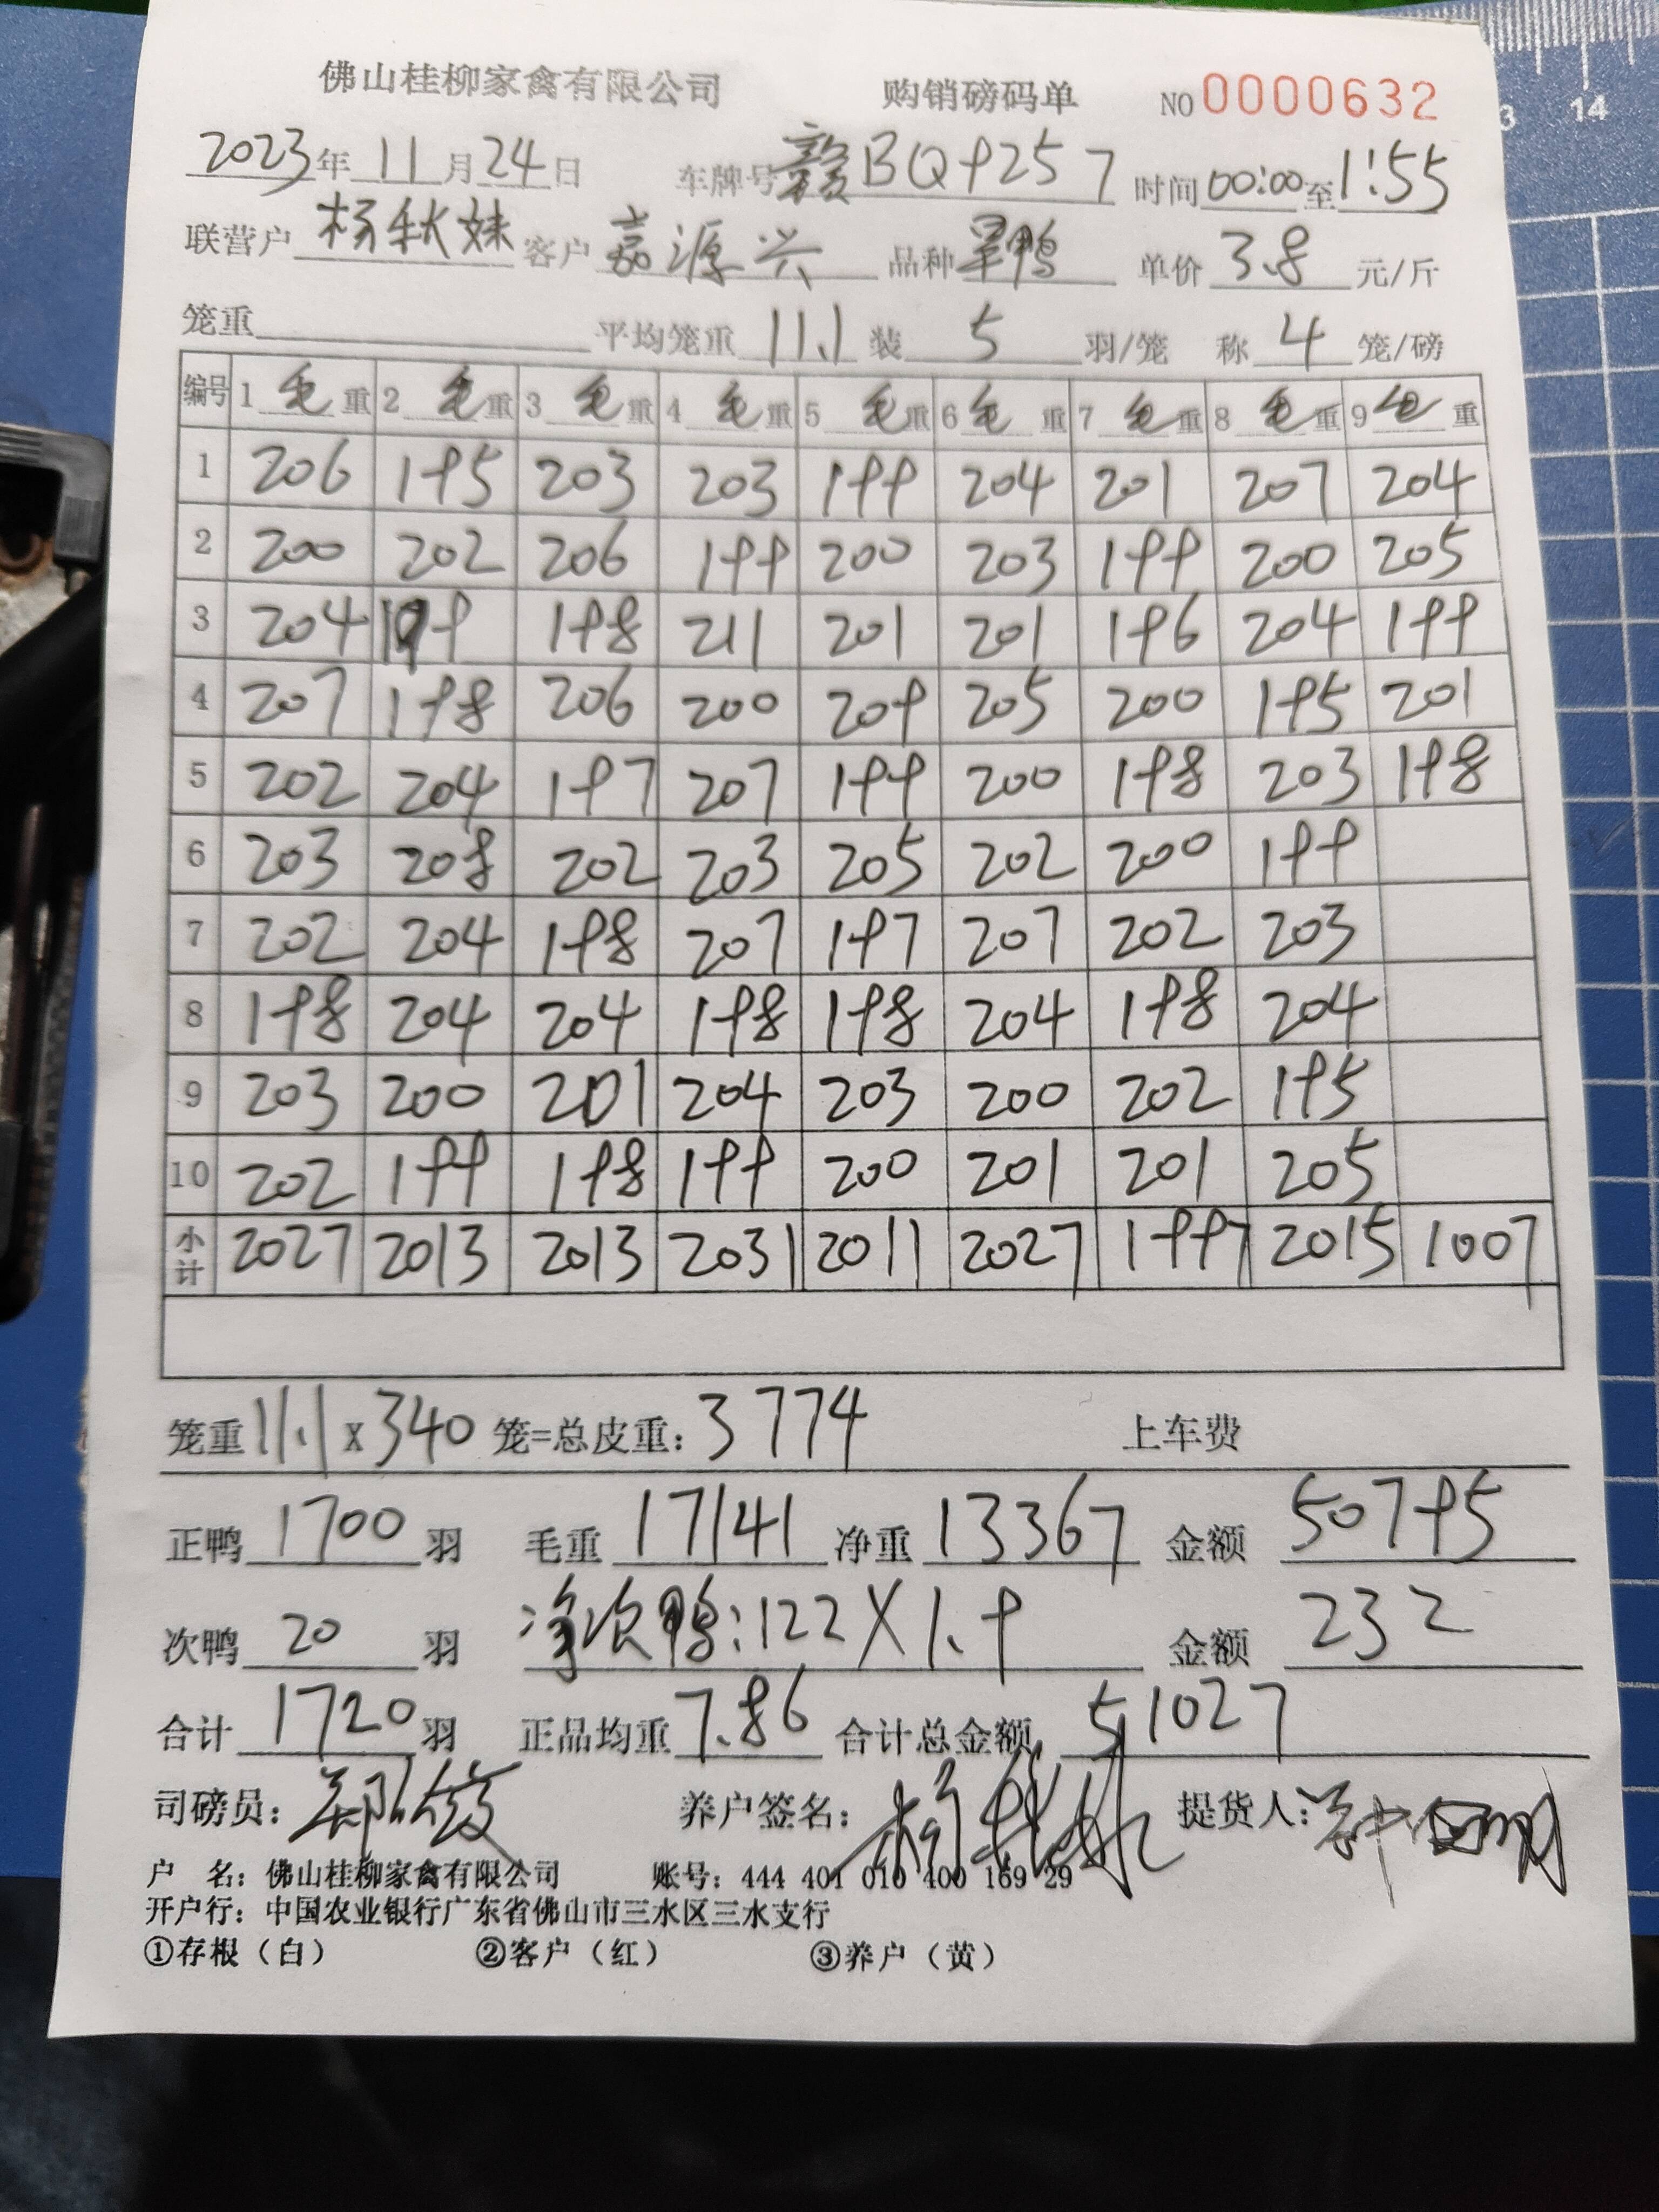 佛山桂柳家禽有限公司 购销磅码单 NO 0000632
2023年 11月 24日 车牌号 赣BQ9257 时间 00:00 至 1:55
联营户 杨秋妹 客户 嘉源兴 品种 旱鸭 单价 3.8 元/斤
笼重 平均笼重 11.1 装 5 羽/笼 称 4 笼/磅
编号 1 毛重 2 毛重 3 毛重 4 毛重 5 毛重 6 毛重 7 毛重 8 毛重 9 毛重
1 206 195 203 203 199 204 201 207 204
2 200 202 206 199 200 203 199 200 205
3 204 199 198 211 201 201 196 204 199
4 207 198 206 200 209 205 200 195 201
5 202 204 197 207 199 200 198 203 198
6 203 208 202 203 205 202 200 199
7 202 204 198 207 197 207 202 203
8 198 204 204 198 198 204 198 204
9 203 200 201 204 203 200 202 195
10 202 199 198 199 200 201 201 205
小计 2027 2013 2013 2031 2011 2027 1997 2015 1007
笼重 11.1 X 340 笼=总皮重: 3774 上车费
正鸭 1700 羽 毛重 17141 净重 13367 金额 50795
次鸭 20 羽 净次鸭:122X1.9 金额 232
合计 1720 羽 正品均重 7.86 合计总金额 51027
司磅员: 养户签名: 杨秋妹 提货人:
户 名: 佛山桂柳家禽有限公司 账号: 444 401 010 400 169 29
开户行: 中国农业银行广东省佛山市三水区三水支行
①存根(白) ②客户(红) ③养户(黄)
3 14